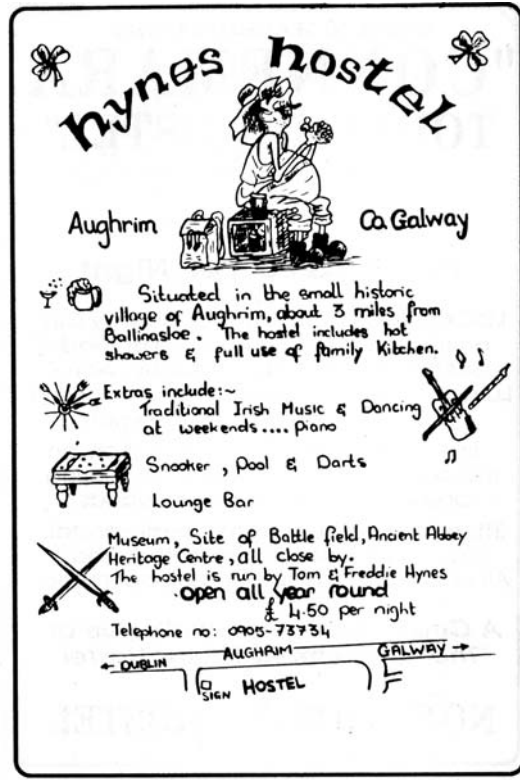 hynes hostel
Aughrim Co. Galway
Situated in the small historic
village of Aughrim, about 3 miles from
Ballinasloe. The hostel includes hot
showers & full use of family Kitchen.
Extras include:~
Traditional Irish Music & Dancing
at weekends.... piano
Snooker, Pool & Darts
Lounge Bar
Museum, Site of Battle field, Ancient Abbey
Heritage Centre, all close by.
The hostel is run by Tom & Freddie Hynes
open all year round
£ 4.50 per night
Telephone no: 0905-73734
DUBLIN AUGHRIM GALWAY
SIGN HOSTEL